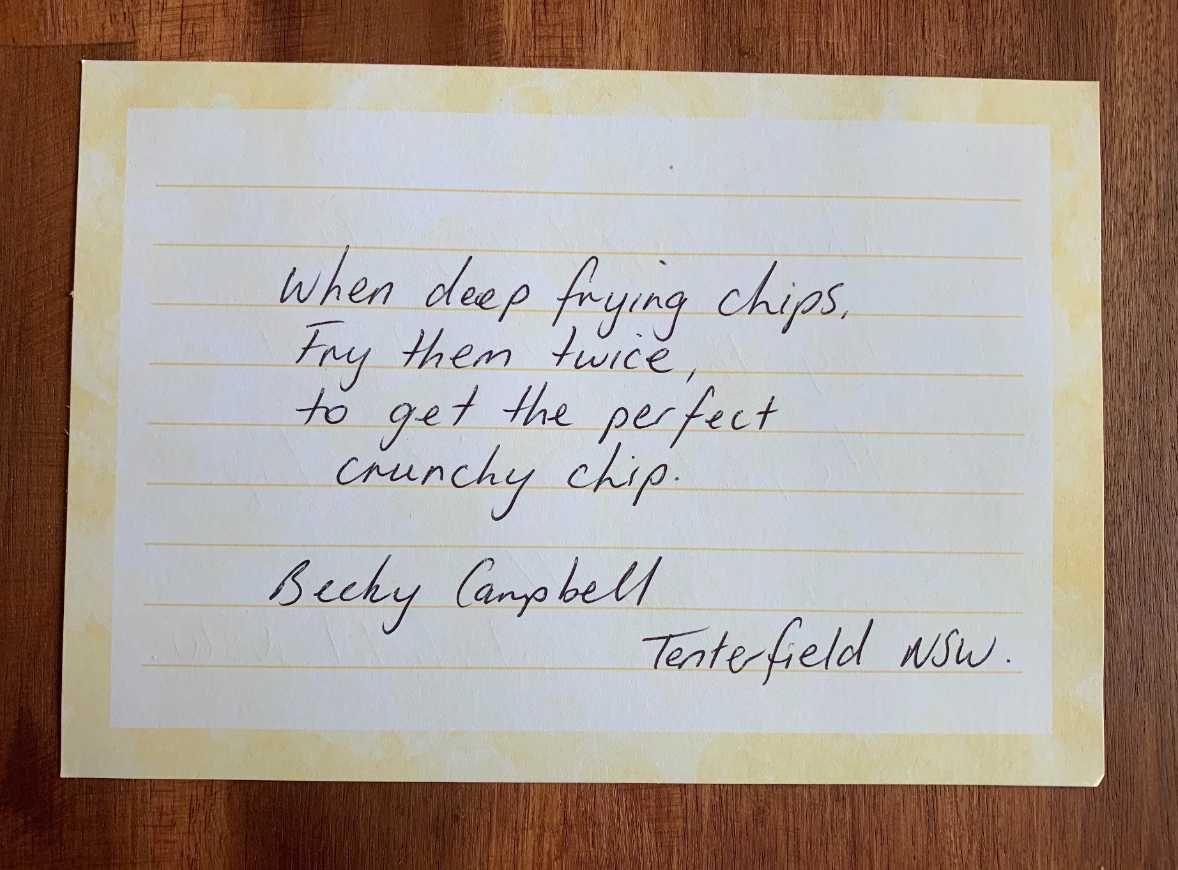 When deep frying chips,
Fry them twice,
to get the perfect
crunchy chip.
Becky Campbell
Tenterfield NSW.